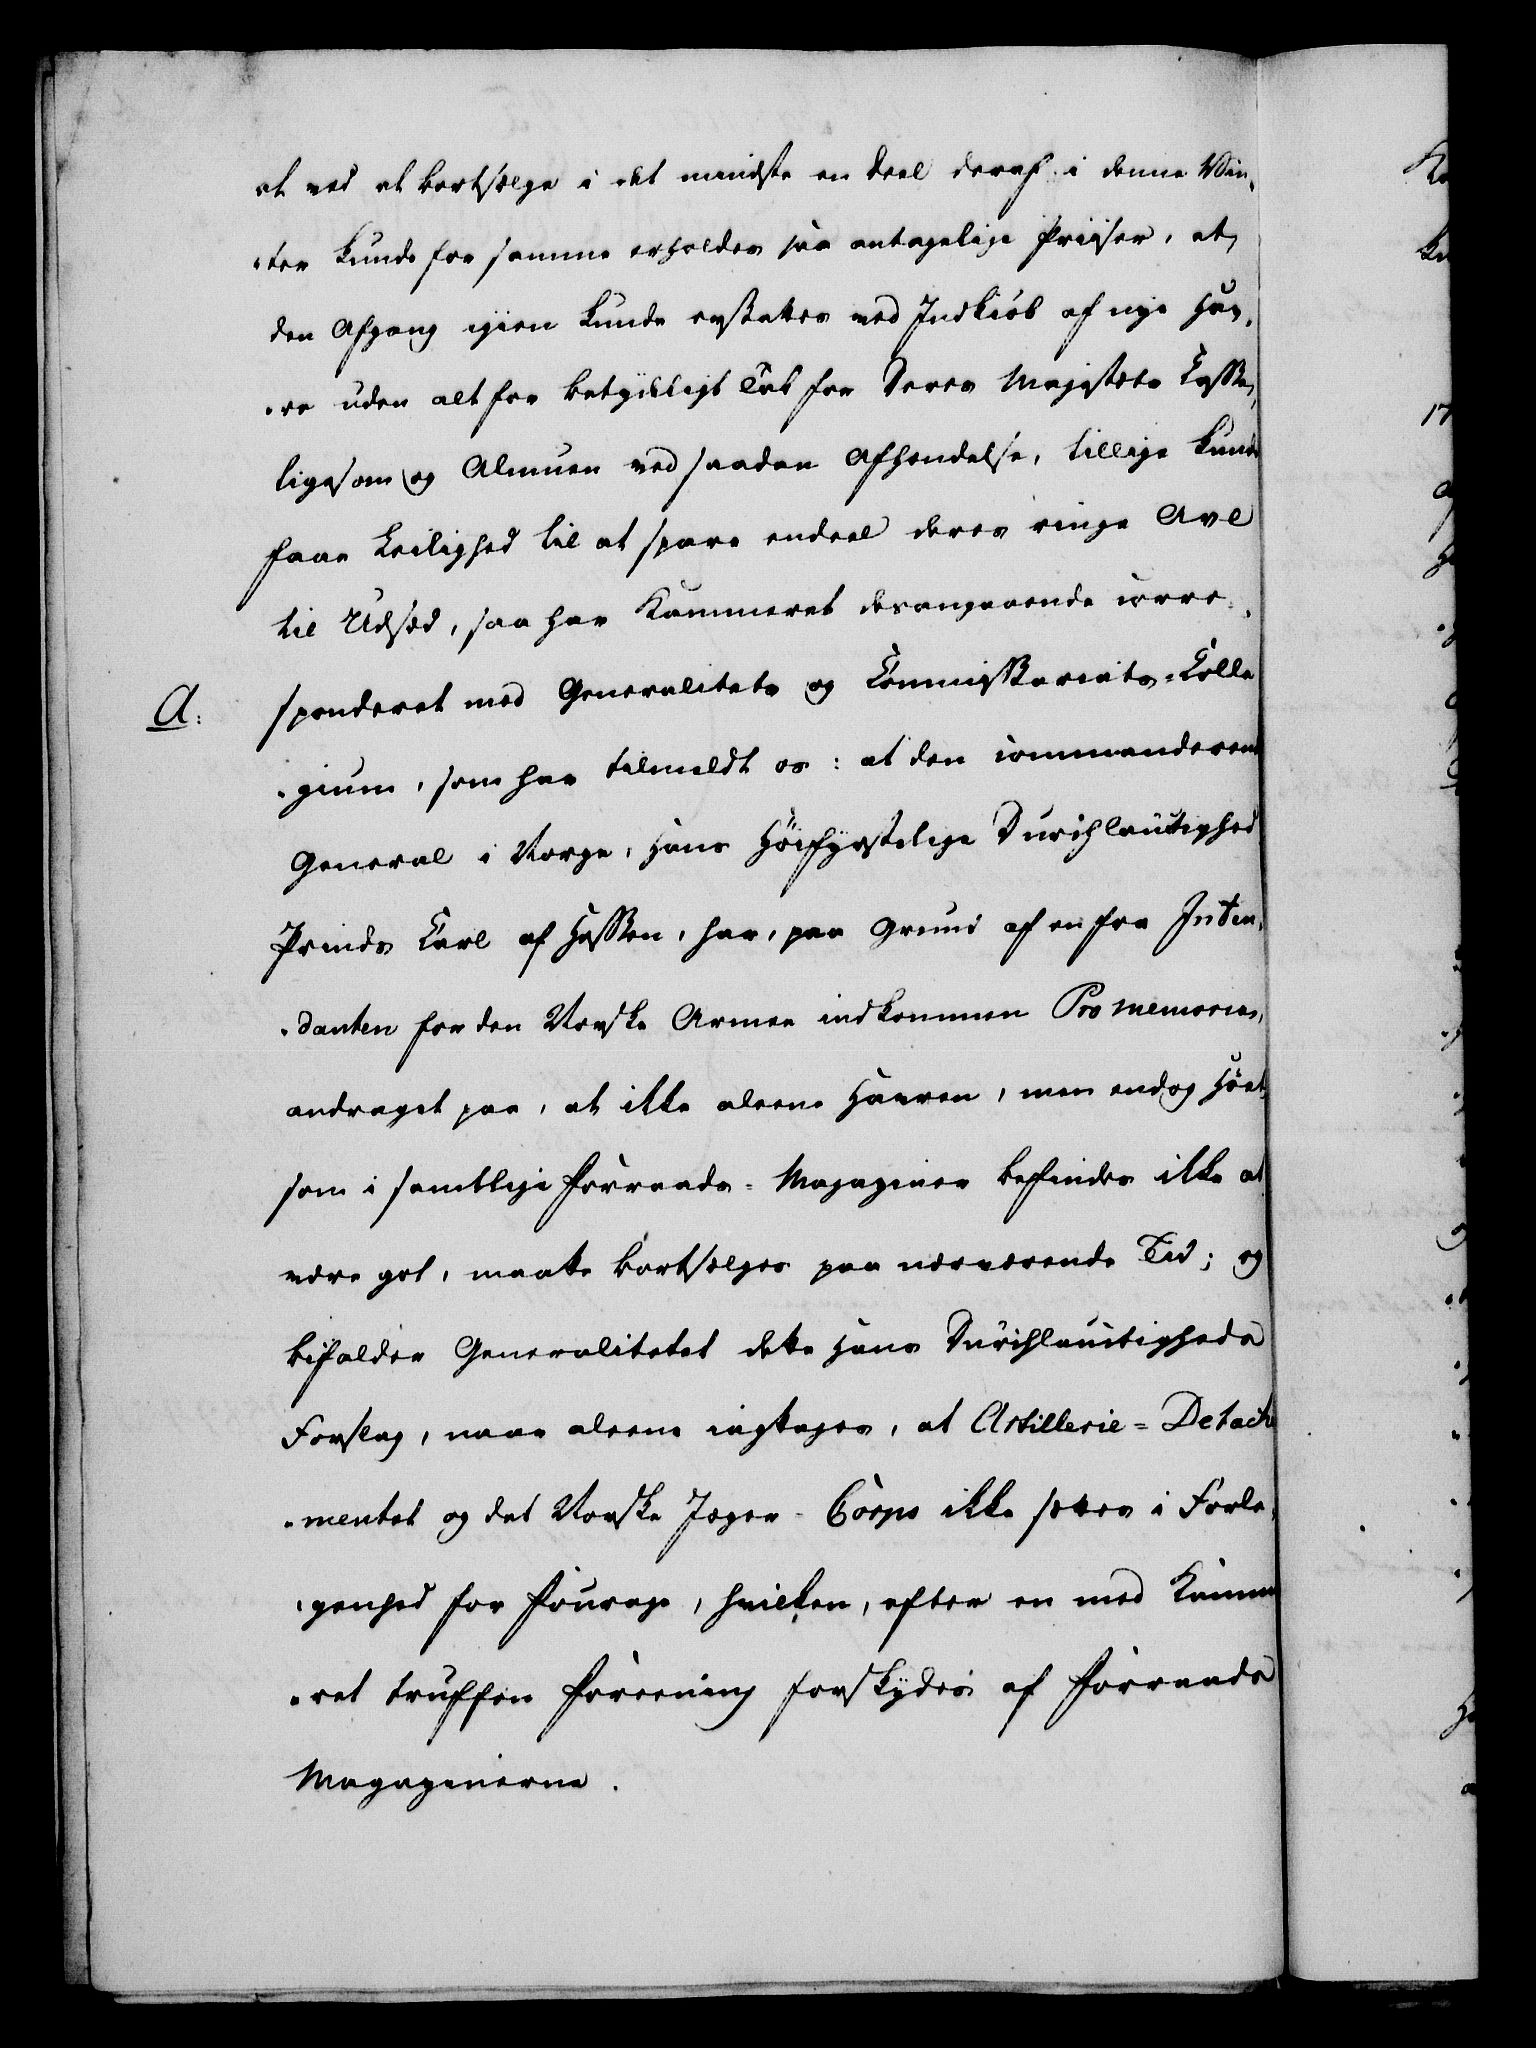 at ved at bortsælge i det mindste en Deel deraf i denne Vin-
-ter kunde for samme erholdes saa antagelige Priiser, at
den Afgang igien kunde erstattes ved Indkiøb af nye Hav-
-re uden alt for betydeligt Tab for Deres Majestæts Casse,
ligesom og Almuen ved saadan Afhændelse, tillige kunde
faae Leilighed til at spare endeel deres ringe Avl
til Udsæd, saa har Kammeret desangaaende corre-
A: sponderet med Generalitets og Commissariats-Colle
-gium, som har tilmeldt os: at den commanderende
General i Norge, Hans Höifyrstelige Durchlauctighed
Prinds Carl af Hessen, har, paa Grund af en fra Inten-
-danten for den Norske Armee indkommen Promemoria,
andraget paa, at ikke alene Havren, men endog Höet,
som i samtlige Forraads-Magaziner befindes ikke at
være got, maatte bortsælges paa nærværende Tid; og
bifalder Generalitetet dette Hans Durchlauctigheds
Forslag, naar alene iagtages, at Artillerie-Detache
-mentet og det Norske Jæger-Corps ikke sættes i Forle-
-genhed for Fourage, hvilken, efter en med Kamme
-ret truffen Foreening forskydes af Forraads
Magazinerne.